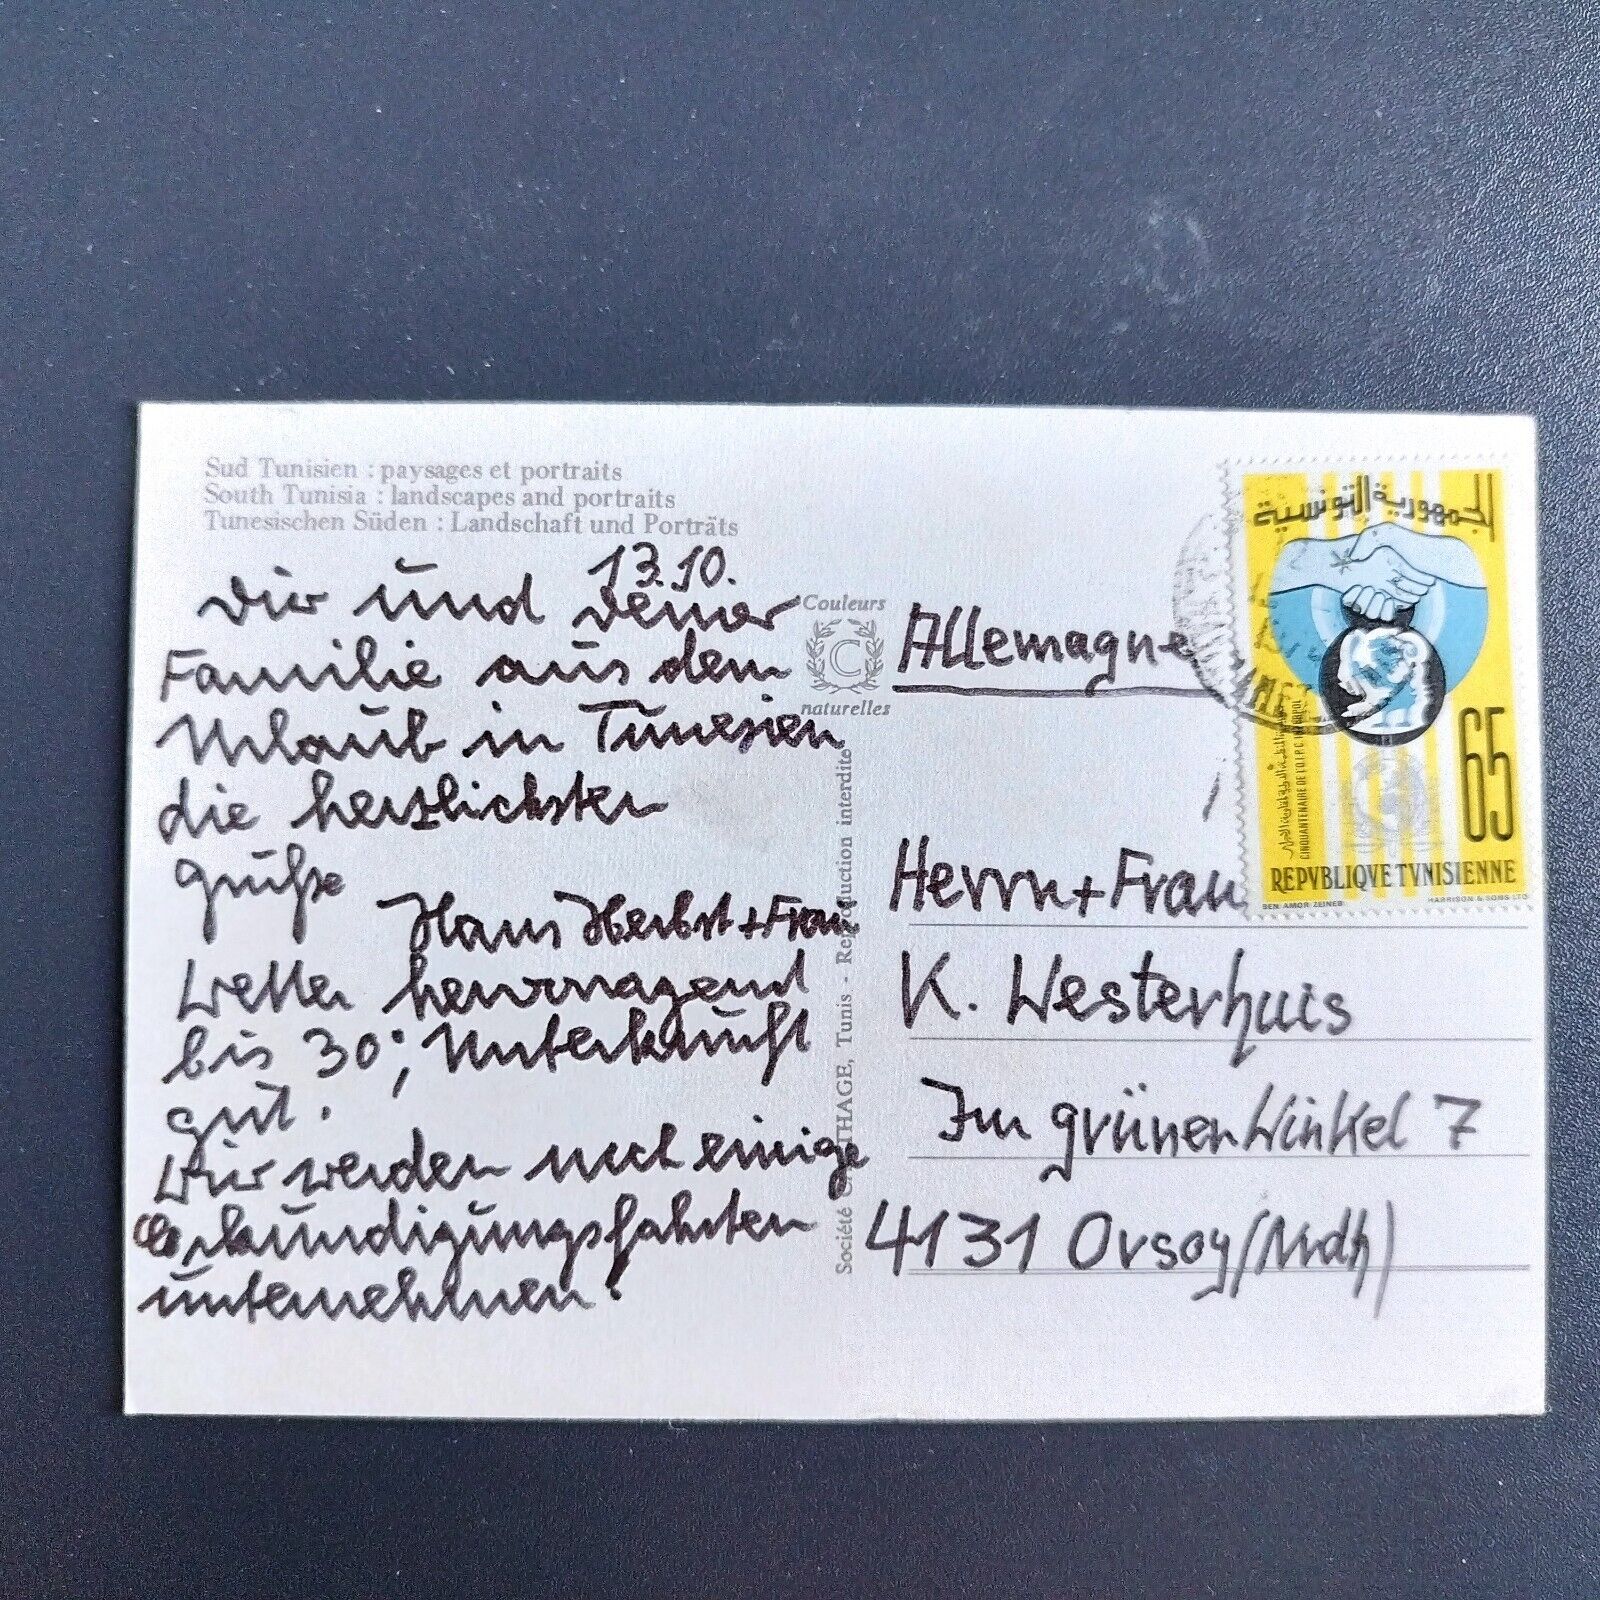 Sud Tunisien : paysages et portraits
South Tunisia : landscapes and portraits
Tunesischen Süden : Landschaft und Porträts
13.10.
Dir und Deiner
Familie aus dem
Urlaub in Tunesien
die herzlichsten
Grüße
Hans Herbst + Frau
Wetter hervorragend
bis 30°; Unterkunft
gut.
Wir werden noch einige
Erkündigungsfahrten
unternehmen!
Couleurs
C
naturelles
Société CARTHAGE, Tunis - Reproduction interdite
Allemagne
Herrn + Frau
K. Westerhuis
Im grünen Winkel 7
4131 Orsoy (Ndrh)
الجمهورية التونسية
65
CINQUANTENAIRE DE L'O.I.P.C. INTERPOL
REPVBLIQVE TVNISIENNE
BEN AMOR ZEINEB
HARRISON & SONS LTD